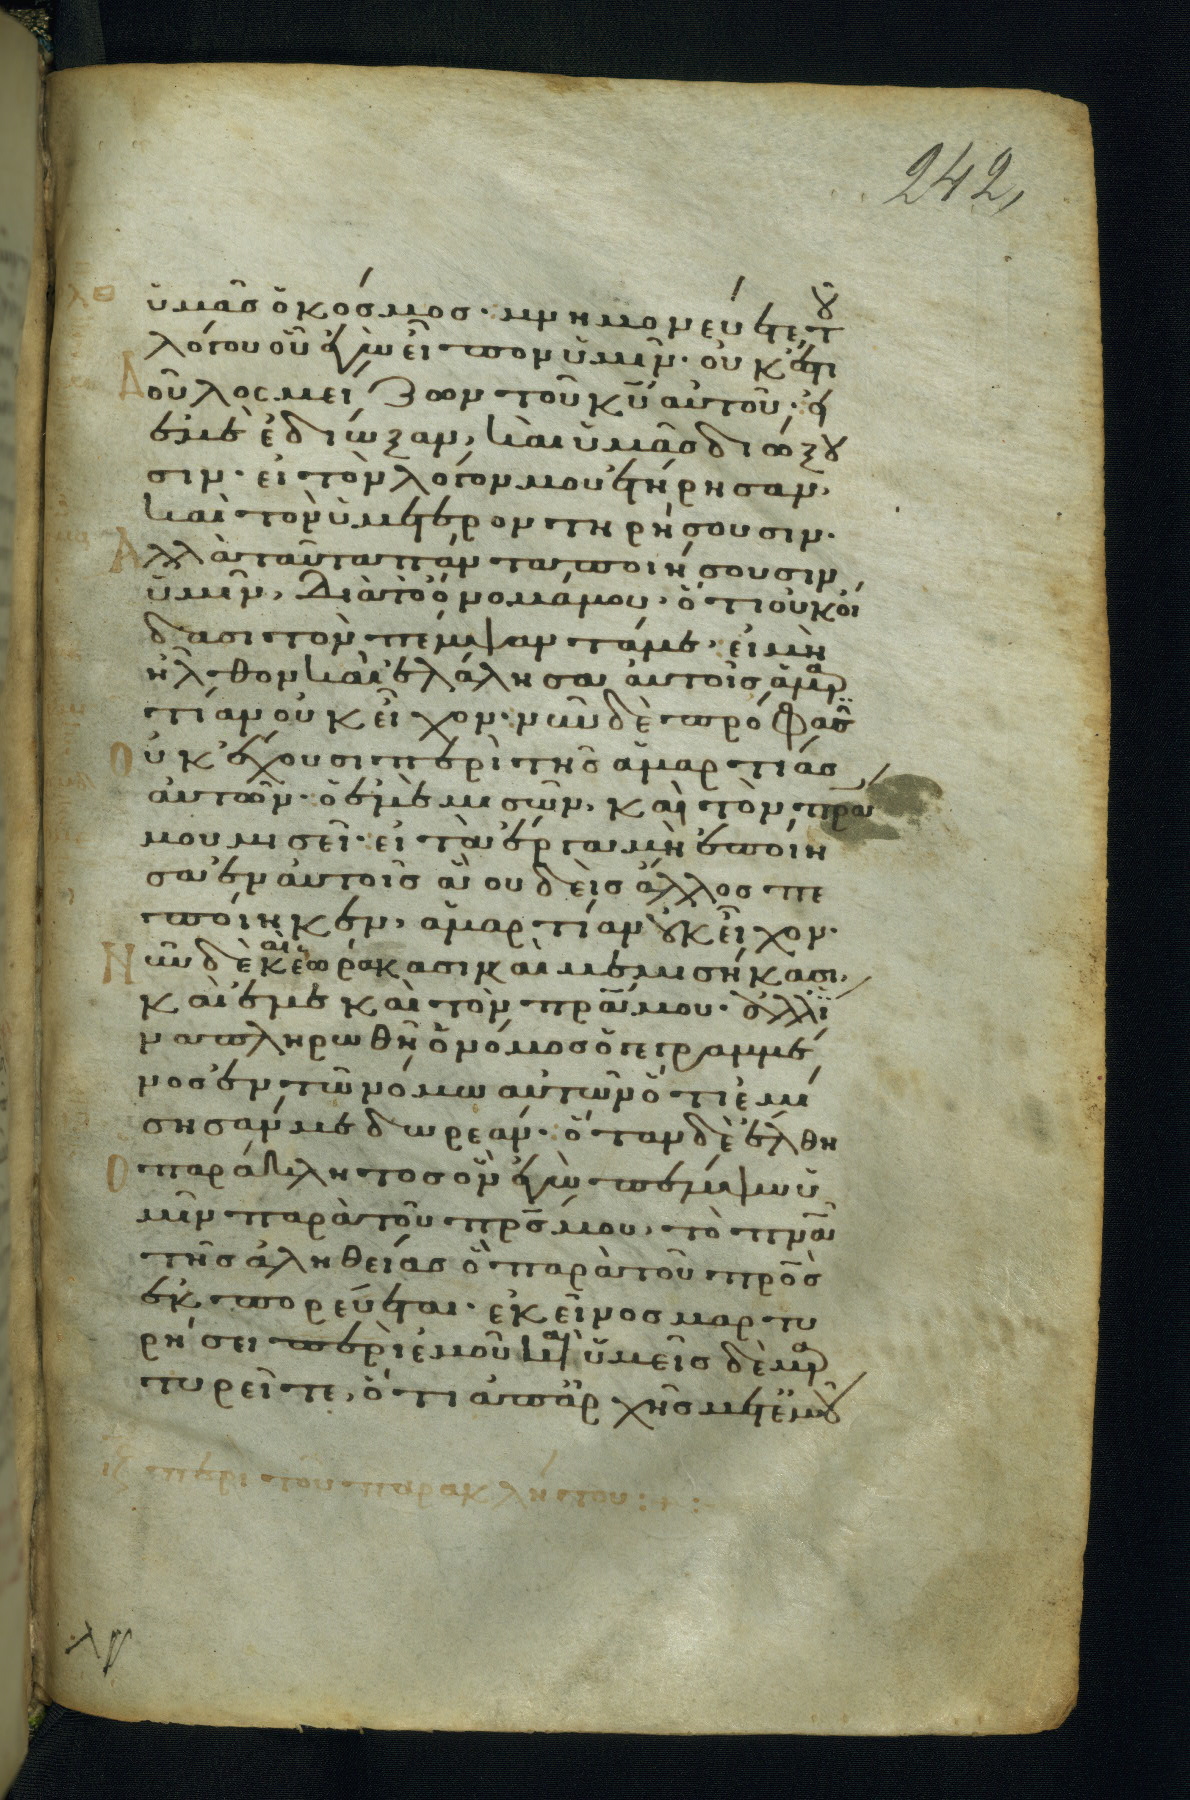 242,
ὑμᾶς ὁ κόσμος· μνημονεύετε τοῦ
λόγου οὗ ἐγὼ εἶπον ὑμῖν· οὐκ ἔστι
Δοῦλος μείζων τοῦ κ̅υ̅ αὐτοῦ· εἰ
ἐμὲ ἐδίωξαν, καὶ ὑμᾶς διώξου
σιν· εἰ τὸν λόγον μου ἐτήρησαν,
καὶ τὸν ὑμέτερον τηρήσουσιν·
Ἀλλὰ ταῦτα πάντα ποιήσουσιν
ὑμῖν, διὰ τὸ ὄνομά μου· ὅτι οὐκ οἴ
δασι τὸν πέμψαντά με· εἰ μὴ
ἦλθον καὶ ἐλάλησα αὐτοῖς, ἁμαρ
τίαν οὐκ εἶχον· νῦν δὲ πρόφασιν
Οὐκ ἔχουσι περὶ τῆς ἁμαρτίας
αὐτῶν· ὁ ἐμὲ μισῶν, καὶ τὸν π̅ρ̅α̅
μου μισεῖ· εἰ τὰ ἔργα μὴ ἐποίη
σα ἐν αὐτοῖς ἃ οὐδεὶς ἄλλος πε
ποίηκεν, ἁμαρτίαν οὐκ εἶχον·
Νῦν δὲ καὶ ἑωράκασι καὶ μεμισήκασι,
καὶ ἐμὲ καὶ τὸν π̅ρ̅α̅ μου· ἀλλ' ἵ
να πληρωθῆ ὁ νόμος ὁ γεγραμμέ
νος ἐν τῶ νόμω αὐτῶν ὅτι ἐμί
σησάν με δωρεάν· ὅταν δὲ ἔλθη
Ὁ παράκλητος ὃν ἐγὼ πέμψω ὑ
μῖν παρὰ τοῦ π̅ρ̅ς̅ μου, τὸ π̅ν̅α̅
τῆς ἀληθείας ὃ παρὰ τοῦ π̅ρ̅ο̅ς̅
ἐκπορεύεται· ἐκεῖνος μαρτυ
ρήσει περὶ ἐμοῦ καὶ ὑμεῖς δὲ μαρ
τυρεῖτε, ὅτι ἀπ' ἀρχῆς μετ' ἐμοῦ
ιζ περὶ τοῦ παρακλήτου:+: